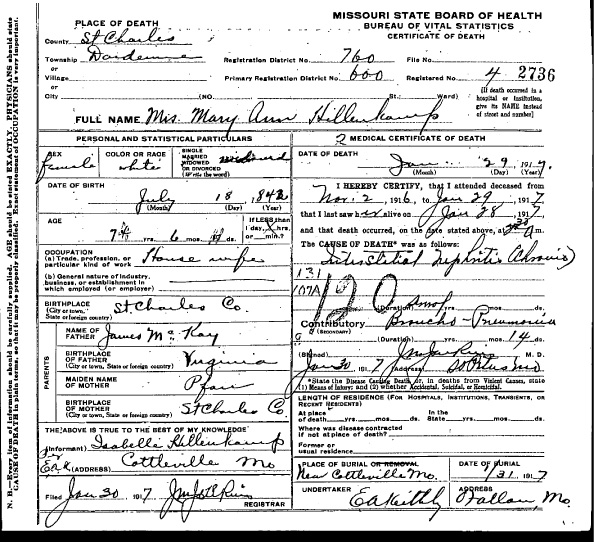 MISSOURI STATE BOARD OF HEALTH
BUREAU OF VITAL STATISTICS
CERTIFICATE OF DEATH
PLACE OF DEATH
County St Charles
Township Dardenne Registration District No. 760 File No.
or
Village Primary Registration District No. 600 Registered No. 4 2736
or
City (NO. St.; Ward)
[If death occurred in a hospital or institution, give its NAME instead of street and number]
FULL NAME Mis. Mary Ann Hillenkamp
PERSONAL AND STATISTICAL PARTICULARS
SEX female
COLOR OR RACE white
SINGLE MARRIED WIDOWED OR DIVORCED (Write the word) widowed
DATE OF BIRTH
July 18, 1842
(Month) (Day) (Year)
AGE
74 yrs. 6 mos.
If LESS than 1 day, hrs. or min.?
OCCUPATION
(a) Trade, profession, or particular kind of work House wife
(b) General nature of industry, business, or establishment in which employed (or employer)
BIRTHPLACE
(City or town, State or foreign country) St Charles Co.
PARENTS
NAME OF FATHER James Mc Kay
BIRTHPLACE OF FATHER
(City or town, State or foreign country) Virginia
MAIDEN NAME OF MOTHER
BIRTHPLACE OF MOTHER
(City or town, State or foreign country) St Charles Co.
THE ABOVE IS TRUE TO THE BEST OF MY KNOWLEDGE
(Informant) Isabelle Hillenkamp
(ADDRESS) Cottleville Mo
Filed Jan 30 1917
REGISTRAR
2 MEDICAL CERTIFICATE OF DEATH
DATE OF DEATH
Jan 29 1917.
(Month) (Day) (Year)
I HEREBY CERTIFY, that I attended deceased from
Nov. 2, 1916, to Jan 29 1917
that I last saw her alive on Jan 28 1917
and that death occurred, on the date stated above, at m.
The CAUSE OF DEATH* was as follows:
Interstitial Nephritis (Chronic)
131
107A 120
(Duration) yrs. mos. ds.
Contributory Broncho-Pneumonia
(SECONDARY)
(Duration) yrs. mos. 14 ds.
(Signed) M. D.
Jan 30 1917 (Address) Mo
*State the Disease Causing Death, or, in deaths from Violent Causes, state (1) Means of Injury; and (2) whether Accidental, Suicidal, or Homicidal.
LENGTH OF RESIDENCE (For Hospitals, Institutions, Transients, or Recent Residents)
At place of death yrs. mos. ds. In the State yrs. mos. ds.
Where was disease contracted if not at place of death?
Former or usual residence
PLACE OF BURIAL OR REMOVAL
Near Cottleville Mo.
DATE OF BURIAL
1/31 1917
UNDERTAKER
E A Keithly
ADDRESS
O'Fallon, Mo.
N. B.—Every item of information should be carefully supplied. AGE should be stated EXACTLY. PHYSICIANS should state CAUSE OF DEATH in plain terms, so that it may be properly classified. Exact statement of OCCUPATION is very important.